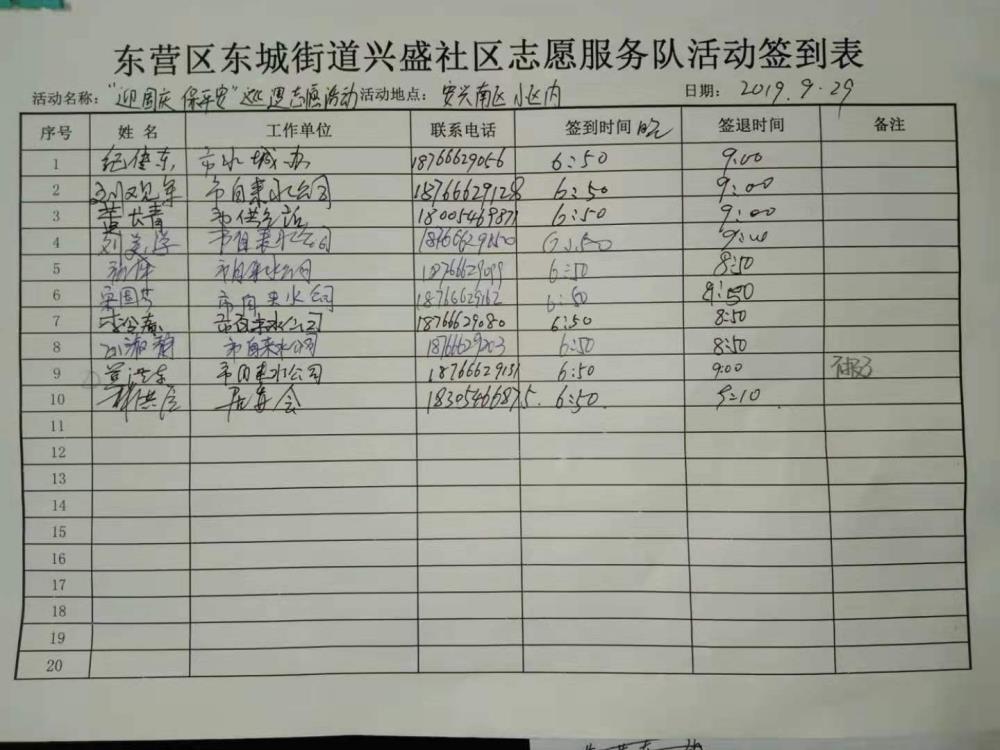 东营区东城街道兴盛社区志愿服务队活动签到表
活动名称："迎国庆 保平安"巡逻志愿活动 活动地点：安兴南区小区内 日期：2019.9.29
序号 姓名 工作单位 联系电话 签到时间 晚 签退时间 备注
1 纪建东 市水城办 18766629056 6:50 9:00
2 刘观军 市自来水公司 18766629128 6:50 9:00
3 黄长青 市供 18005469871 6:50 9:00
4 刘 市自来水公司 6:50 9:00
5 市自来水公司 18766629099 6:50 8:50
6 宋国 市自来水公司 18766629162 6:50 8:50
7 市自来水公司 18766629080 6:50 8:50
8 市自来水公司 18766629203 6:50 8:50
9 市自来水公司 18766629131 6:50 9:00
10 居委会 18305466875. 6:50 9:10
11
12
13
14
15
16
17
18
19
20